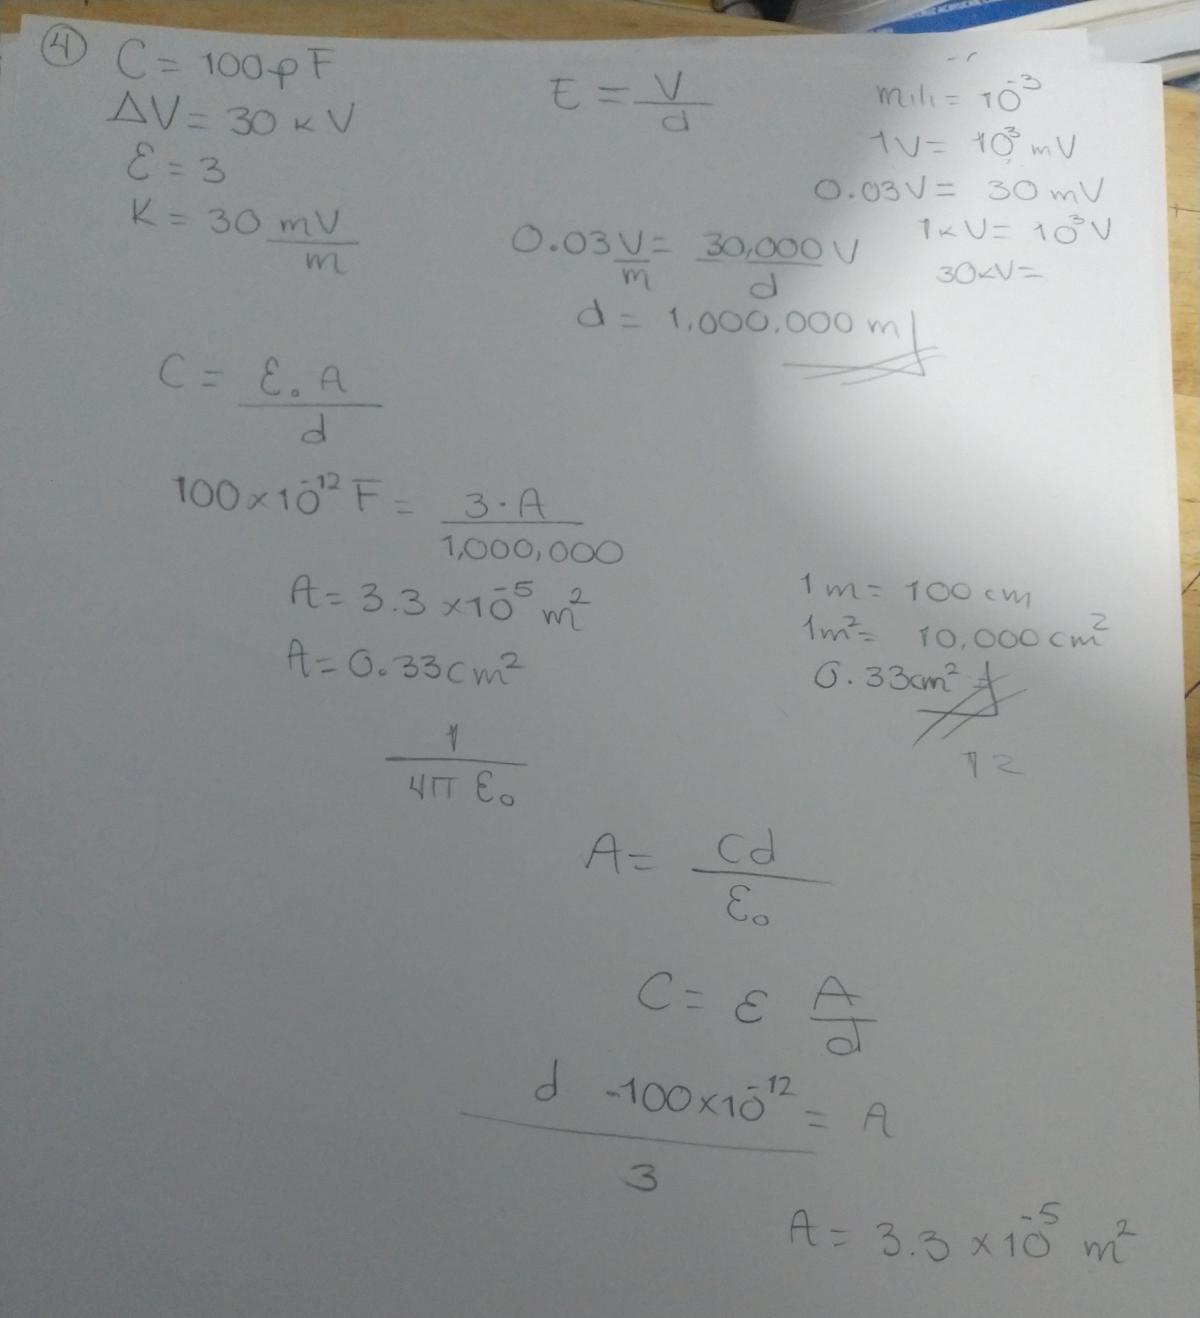 4
C = 100pF
ΔV = 30 kV
Ɛ = 3
K = 30 mV/m
E = V/d
mili = 10⁻³
1V = 10³ mV
0.03V = 30 mV
1kV = 10³V
30kV =
0.03 V/m = 30,000V/d
d = 1,000,000 m
C = Ɛ₀ A/d
100×10⁻¹² F = 3·A/1,000,000
A = 3.3 ×10⁻⁵ m²
A = 0.33cm²
1m = 100 cm
1m² = 10,000 cm²
0.33cm²
12
1/4π Ɛ₀
A = Cd/Ɛ₀
C = ε A/d
d ·100×10⁻¹²/3 = A
A = 3.3 × 10⁻⁵ m²